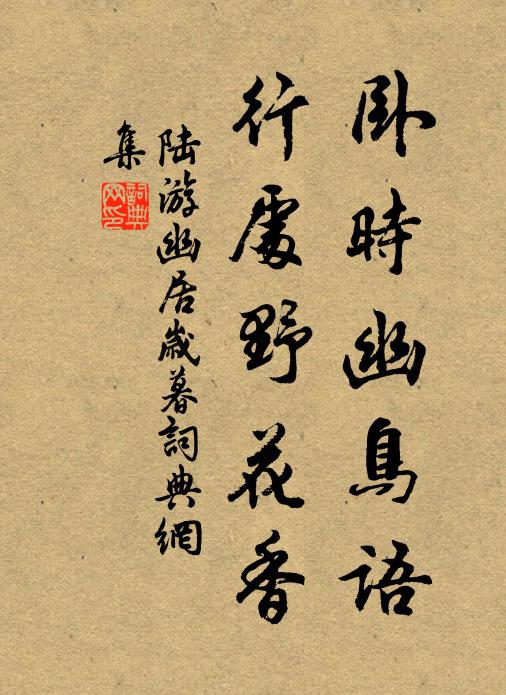 卧時幽鳥語
行處野花香
陸游幽居歲暮詞典網
集
詞典
网印